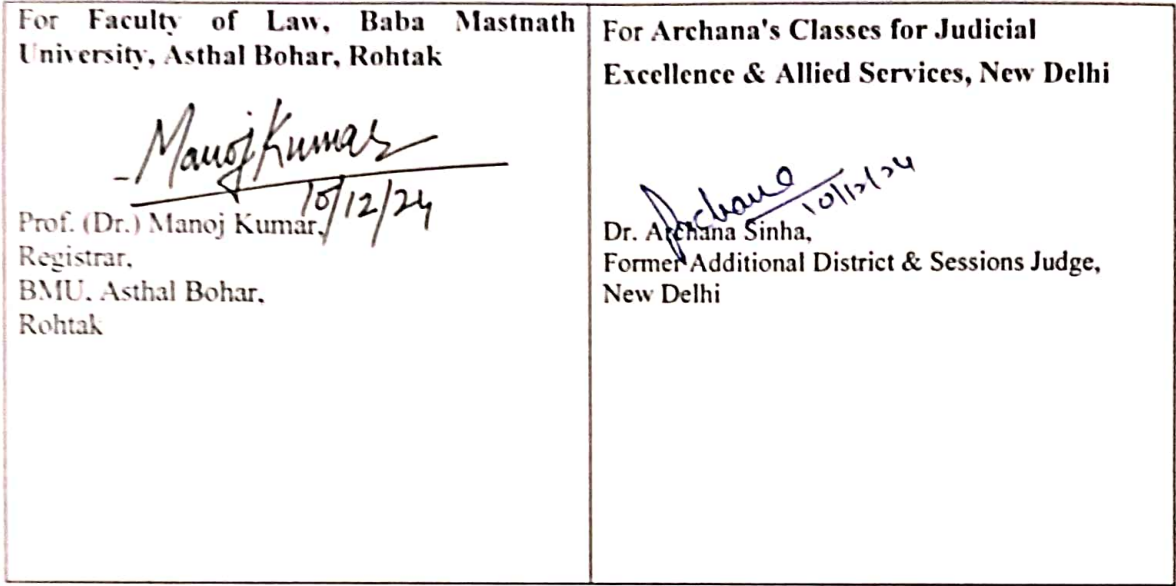 For Faculty of Law, Baba Mastnath
University, Asthal Bohar, Rohtak
Manoj Kumar
10/12/24
Prof. (Dr.) Manoj Kumar,
Registrar,
BMU, Asthal Bohar,
Rohtak
For Archana's Classes for Judicial
Excellence & Allied Services, New Delhi
Archana
10/12/24
Dr. Archana Sinha,
Former Additional District & Sessions Judge,
New Delhi